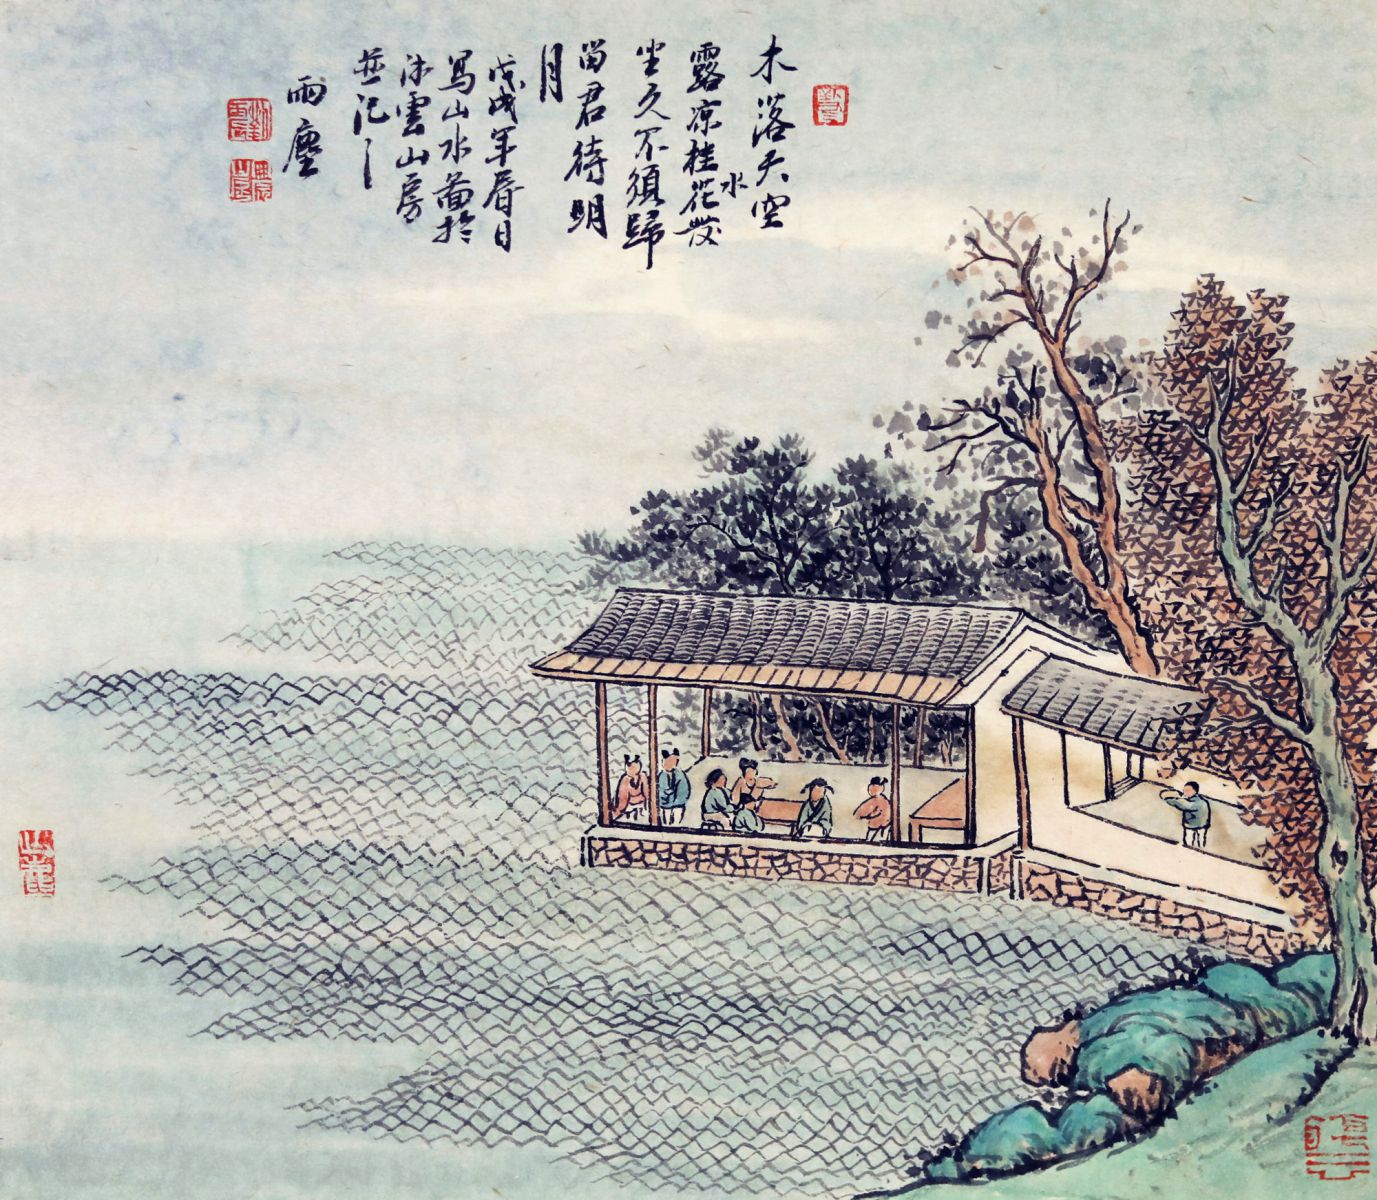 木落天空水
露凉桂花發
坐久不須歸
留君待明
月
戊戌年春日
写山水畨於
沐雲山房
並记之
雨塵